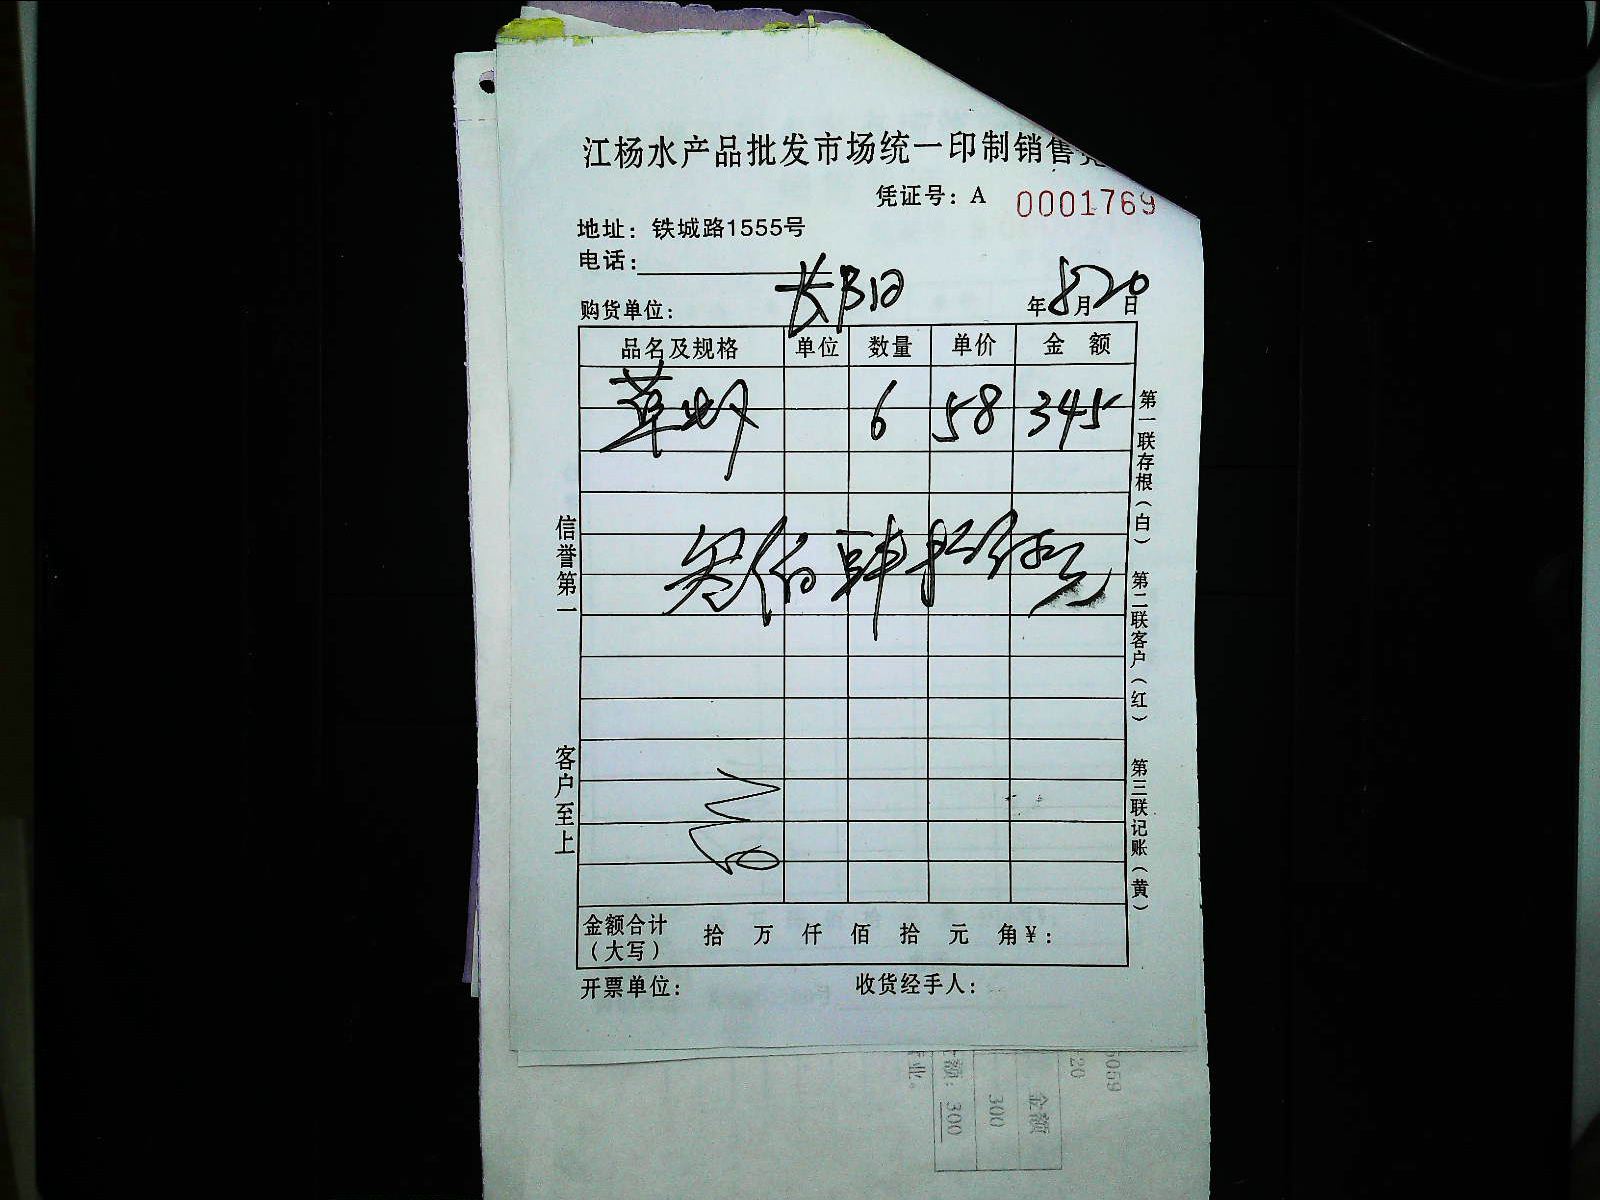 江杨水产品批发市场统一印制销售
凭证号：A 0001769
地址：铁城路1555号
电话：
购货单位： 长阳 年 8月20日
品名及规格 单位 数量 单价 金 额
草虾 6 58 345
叁佰肆拾伍元
金额合计（大写） 拾 万 仟 佰 拾 元 角￥：
开票单位： 收货经手人：
信誉第一
客户至上
第一联存根（白）
第二联客户（红）
第三联记账（黄）
5059
20
金额
300
300